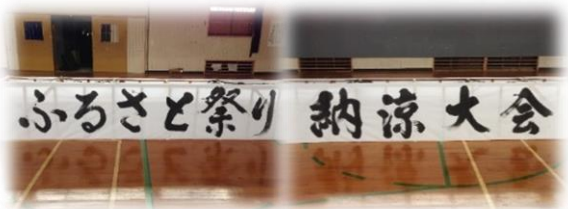 ふるさと祭り 納涼大会